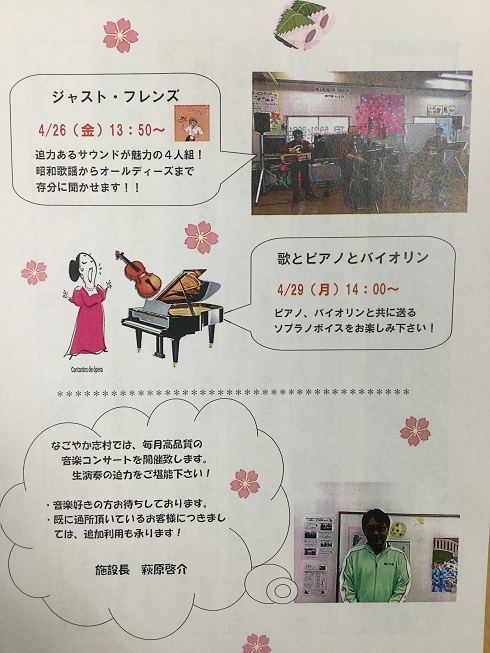 ジャスト・フレンズ
4/26（金）13：50～
迫力あるサウンドが魅力の４人組！
昭和歌謡からオールディーズまで
存分に聞かせます！！
歌とピアノとバイオリン
4/29（月）14：00～
ピアノ、バイオリンと共に送る
ソプラノボイスをお楽しみ下さい！
Cantantes de ópera
****************************************
なごやか志村では、毎月高品質の
音楽コンサートを開催致します。
生演奏の迫力をご堪能下さい！
・音楽好きの方お待ちしております。
・既に通所頂いているお客様につきまし
ては、追加利用も承ります！
施設長　萩原啓介